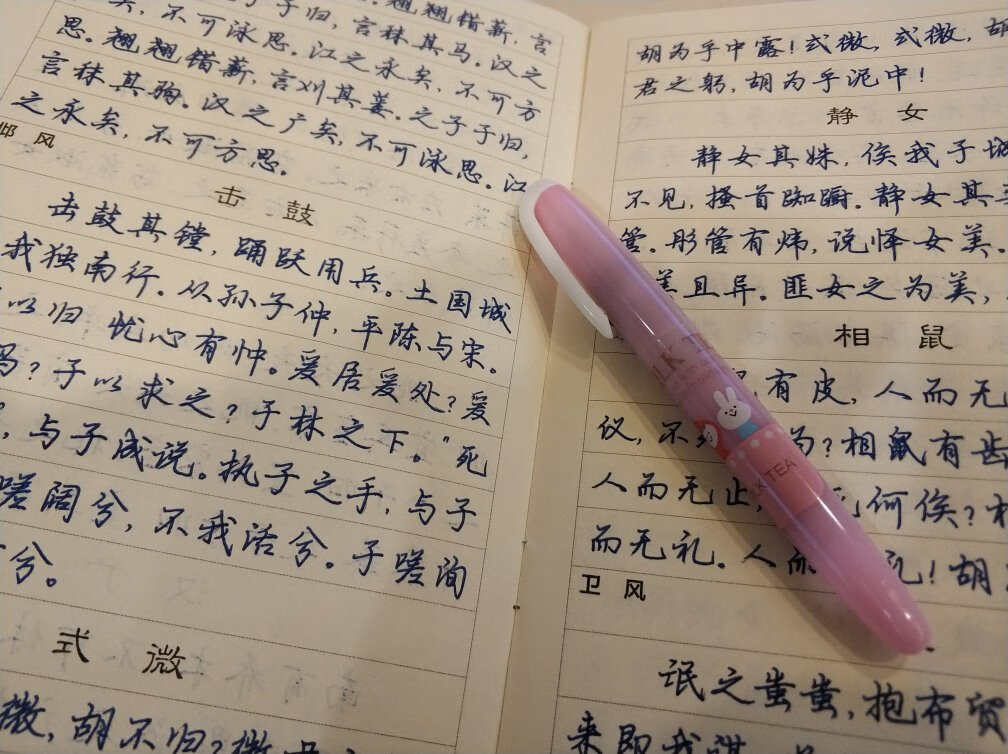 翘翘错薪，言
矣，不可泳思。江之永矣，不可方
思。翘翘错薪，言刈其蒌。之子于归，
言秣其驹。汉之广矣，不可泳思。江
之永矣，不可方思。
邶风
击鼓
击鼓其镗，踊跃用兵。土国城
我独南行。从孙子仲，平陈与宋。
以归，忧心有忡。爰居爰处？爰
马？于以求之？于林之下。“死
，与子成说。执子之手，与子
嗟阔兮，不我活兮。于嗟洵
兮。
式微
微，胡不归？微
胡为乎中露！式微，式微，胡
君之躬，胡为乎泥中！
静女
静女其姝，俟我于城
不见，搔首踟蹰。静女其
管。彤管有炜，说怿女美。
美且异。匪女之为美，
相鼠
有皮，人而无
仪，不 为？相鼠有齿
人而无止， 何俟？相
而无礼。人而 礼！胡
卫风
氓之蚩蚩，抱布贸
来即我谋
MILK TEA
MILK TEA